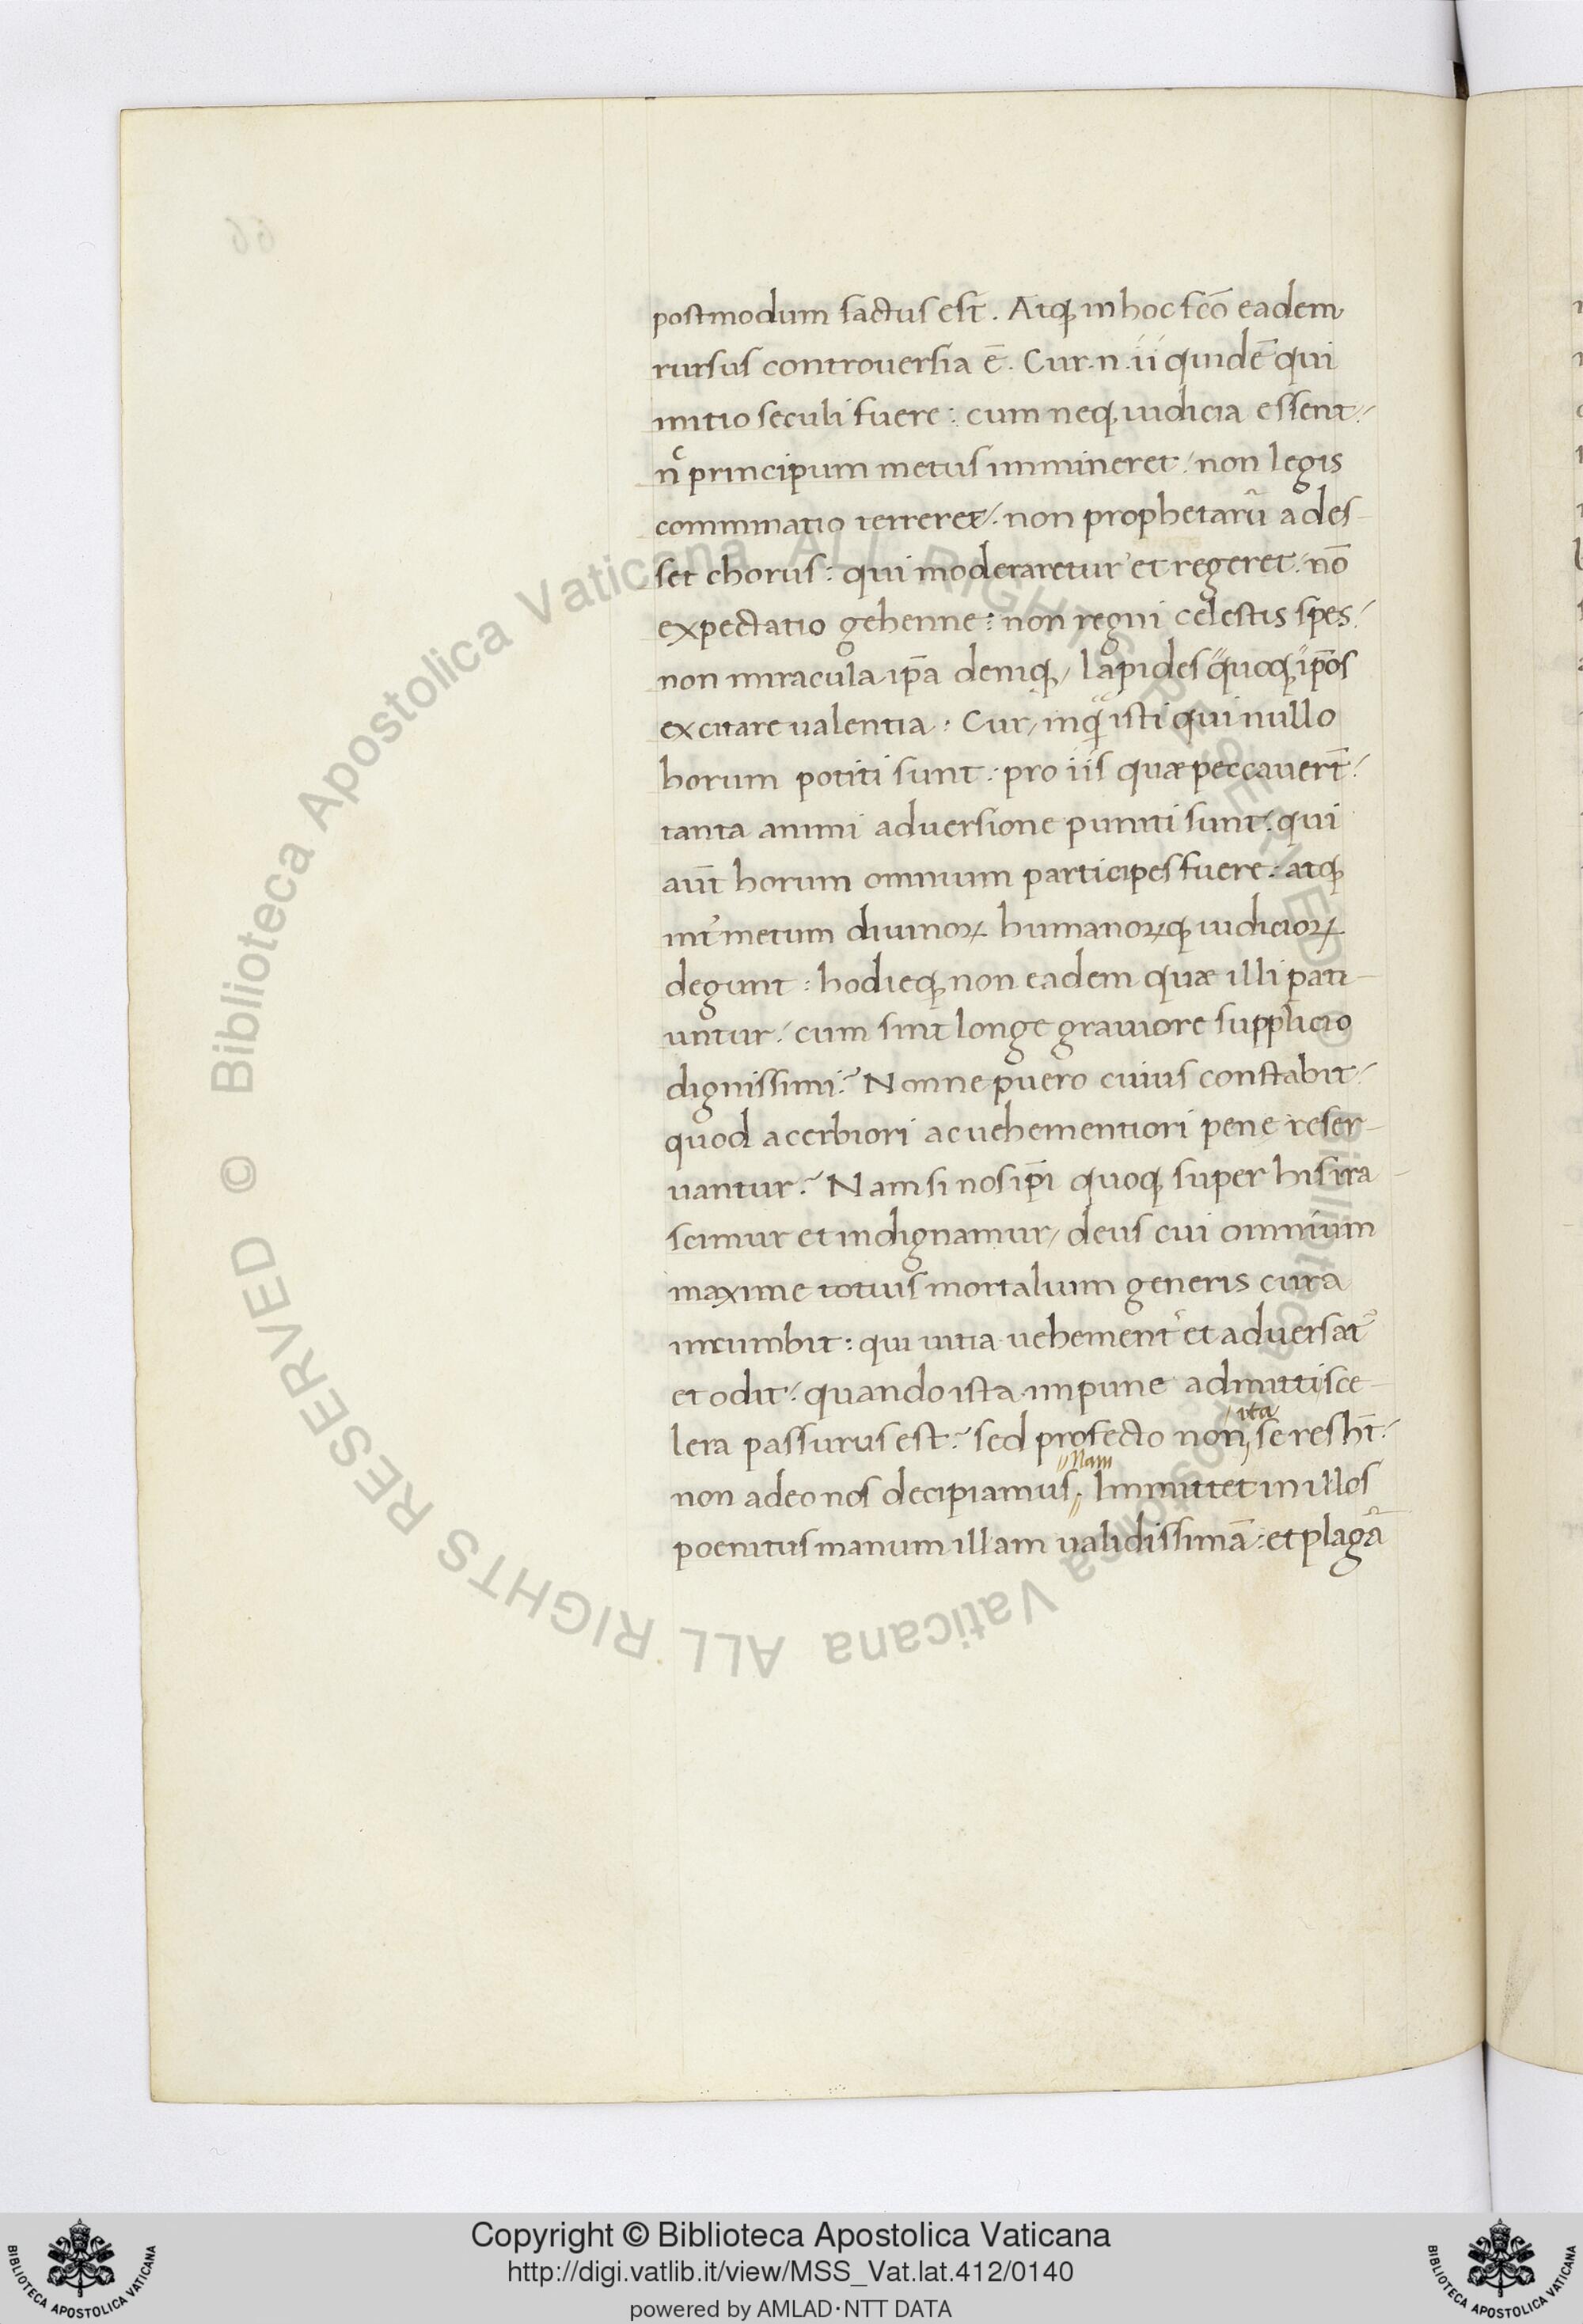 postmodum factus est. Atq; in hoc fcō eadem
rursus controuersia ē. Cur .n. ii quidē qui
initio seculi fuere: cum neq; iudicia essent:
nc̄ principum metus immineret: non legis
comminatio terreret: non prophetarū ades-
set chorus: qui moderaretur et regeret: nō
expectatio gehenne: non regni celestis spes:
non miracula ip̄a deniq; lapides quoq; ip̄os
excitare ualentia: Cur, inq̄ isti qui nullo
horum potiti sunt: pro iis quæ peccauert̄:
tanta animi aduersione puniti sunt: qui
aut̄ horum omnium participes fuere: atq;
int̉ metum diuinoꝝ humanoꝝq; iudicioꝝ
degunt: hodieq; non eadem quæ illi pati-
untur: cum sint longe grauiore supplicio
dignissimi? Nonne puero cuius constabit:
quod acerbiori ac uehementiori pene reser-
uantur? Nam si nos ip̄i quoq; super his ira-
scimur et indignamur, deus cui omnium
maxime totius mortalium generis cura
incumbit: qui uitia uehement̉ et aduersat᷑
et odit: quando ista impune admitti sce-
lera passurus est? sed profecto non ita se res ht̄:
non adeo nos decipiamus. Nam Immittet in illos
poenitus manum illam ualidissimā: et plagā
66
© Biblioteca Apostolica Vaticana ALL RIGHTS RESERVED © Biblioteca Apostolica Vaticana ALL RIGHTS RESERVED
Copyright © Biblioteca Apostolica Vaticana
http://digi.vatlib.it/view/MSS_Vat.lat.412/0140
powered by AMLAD·NTT DATA
BIBLIOTECA APOSTOLICA VATICANA
BIBLIOTECA APOSTOLICA VATICANA